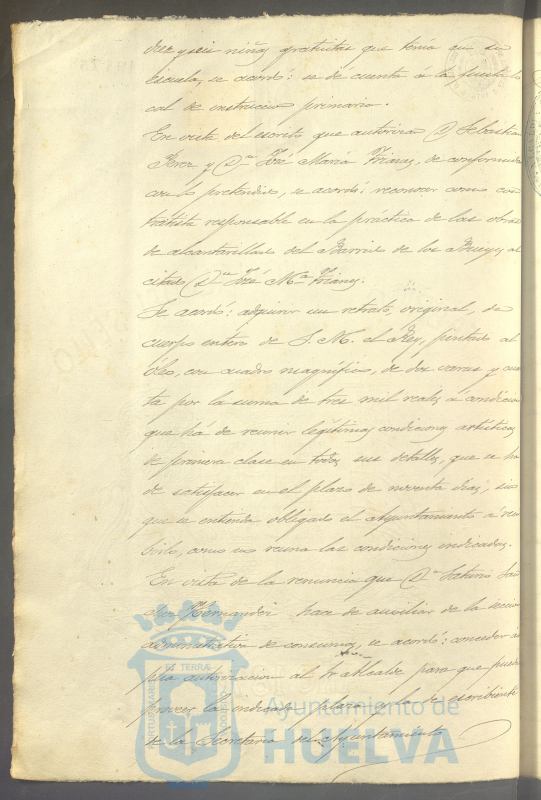 diez y seis niñas gratuitas que tenía en su
escuela, se acordó: se dé cuenta á la Junta lo
cal de instruccion primaria.
En vista del escrito que autorizan Dn Sebastian
Perez y Dn José María Trianes, de conformidad
con lo pretendido, se acordó: reconocer como con
tratista responsable en la práctica de las obras
de alcantarillado del Barrio de los Bueyes al
citado Dn José Ma Trianes.
Se acordó: adquirir un retrato, original, de
cuerpo entero de S. M. el Rey, pintado al
óleo, con cuadro magnífico, de dos varas y cuar
ta por la suma de tres mil reales á condicion
que há de reunir legítimas condiciones artísticas
de primera clase en todos sus detalles, que se ha
de satisfacer en el plazo de noventa dias, sin
que se entienda obligado el Ayuntamiento á reci
birlo, como no reuna las condiciones indicadas.
En vista de la renuncia que Dn
Hernandez hace de auxiliar de la
administrativa de consumos, se acordó: conceder am
plia autorizacion al Sr Alcalde para que pueda
proveer la indicada plaza y la de escribiente
de la Secretaría del Ayuntamiento
Ayuntamiento de
HUELVA